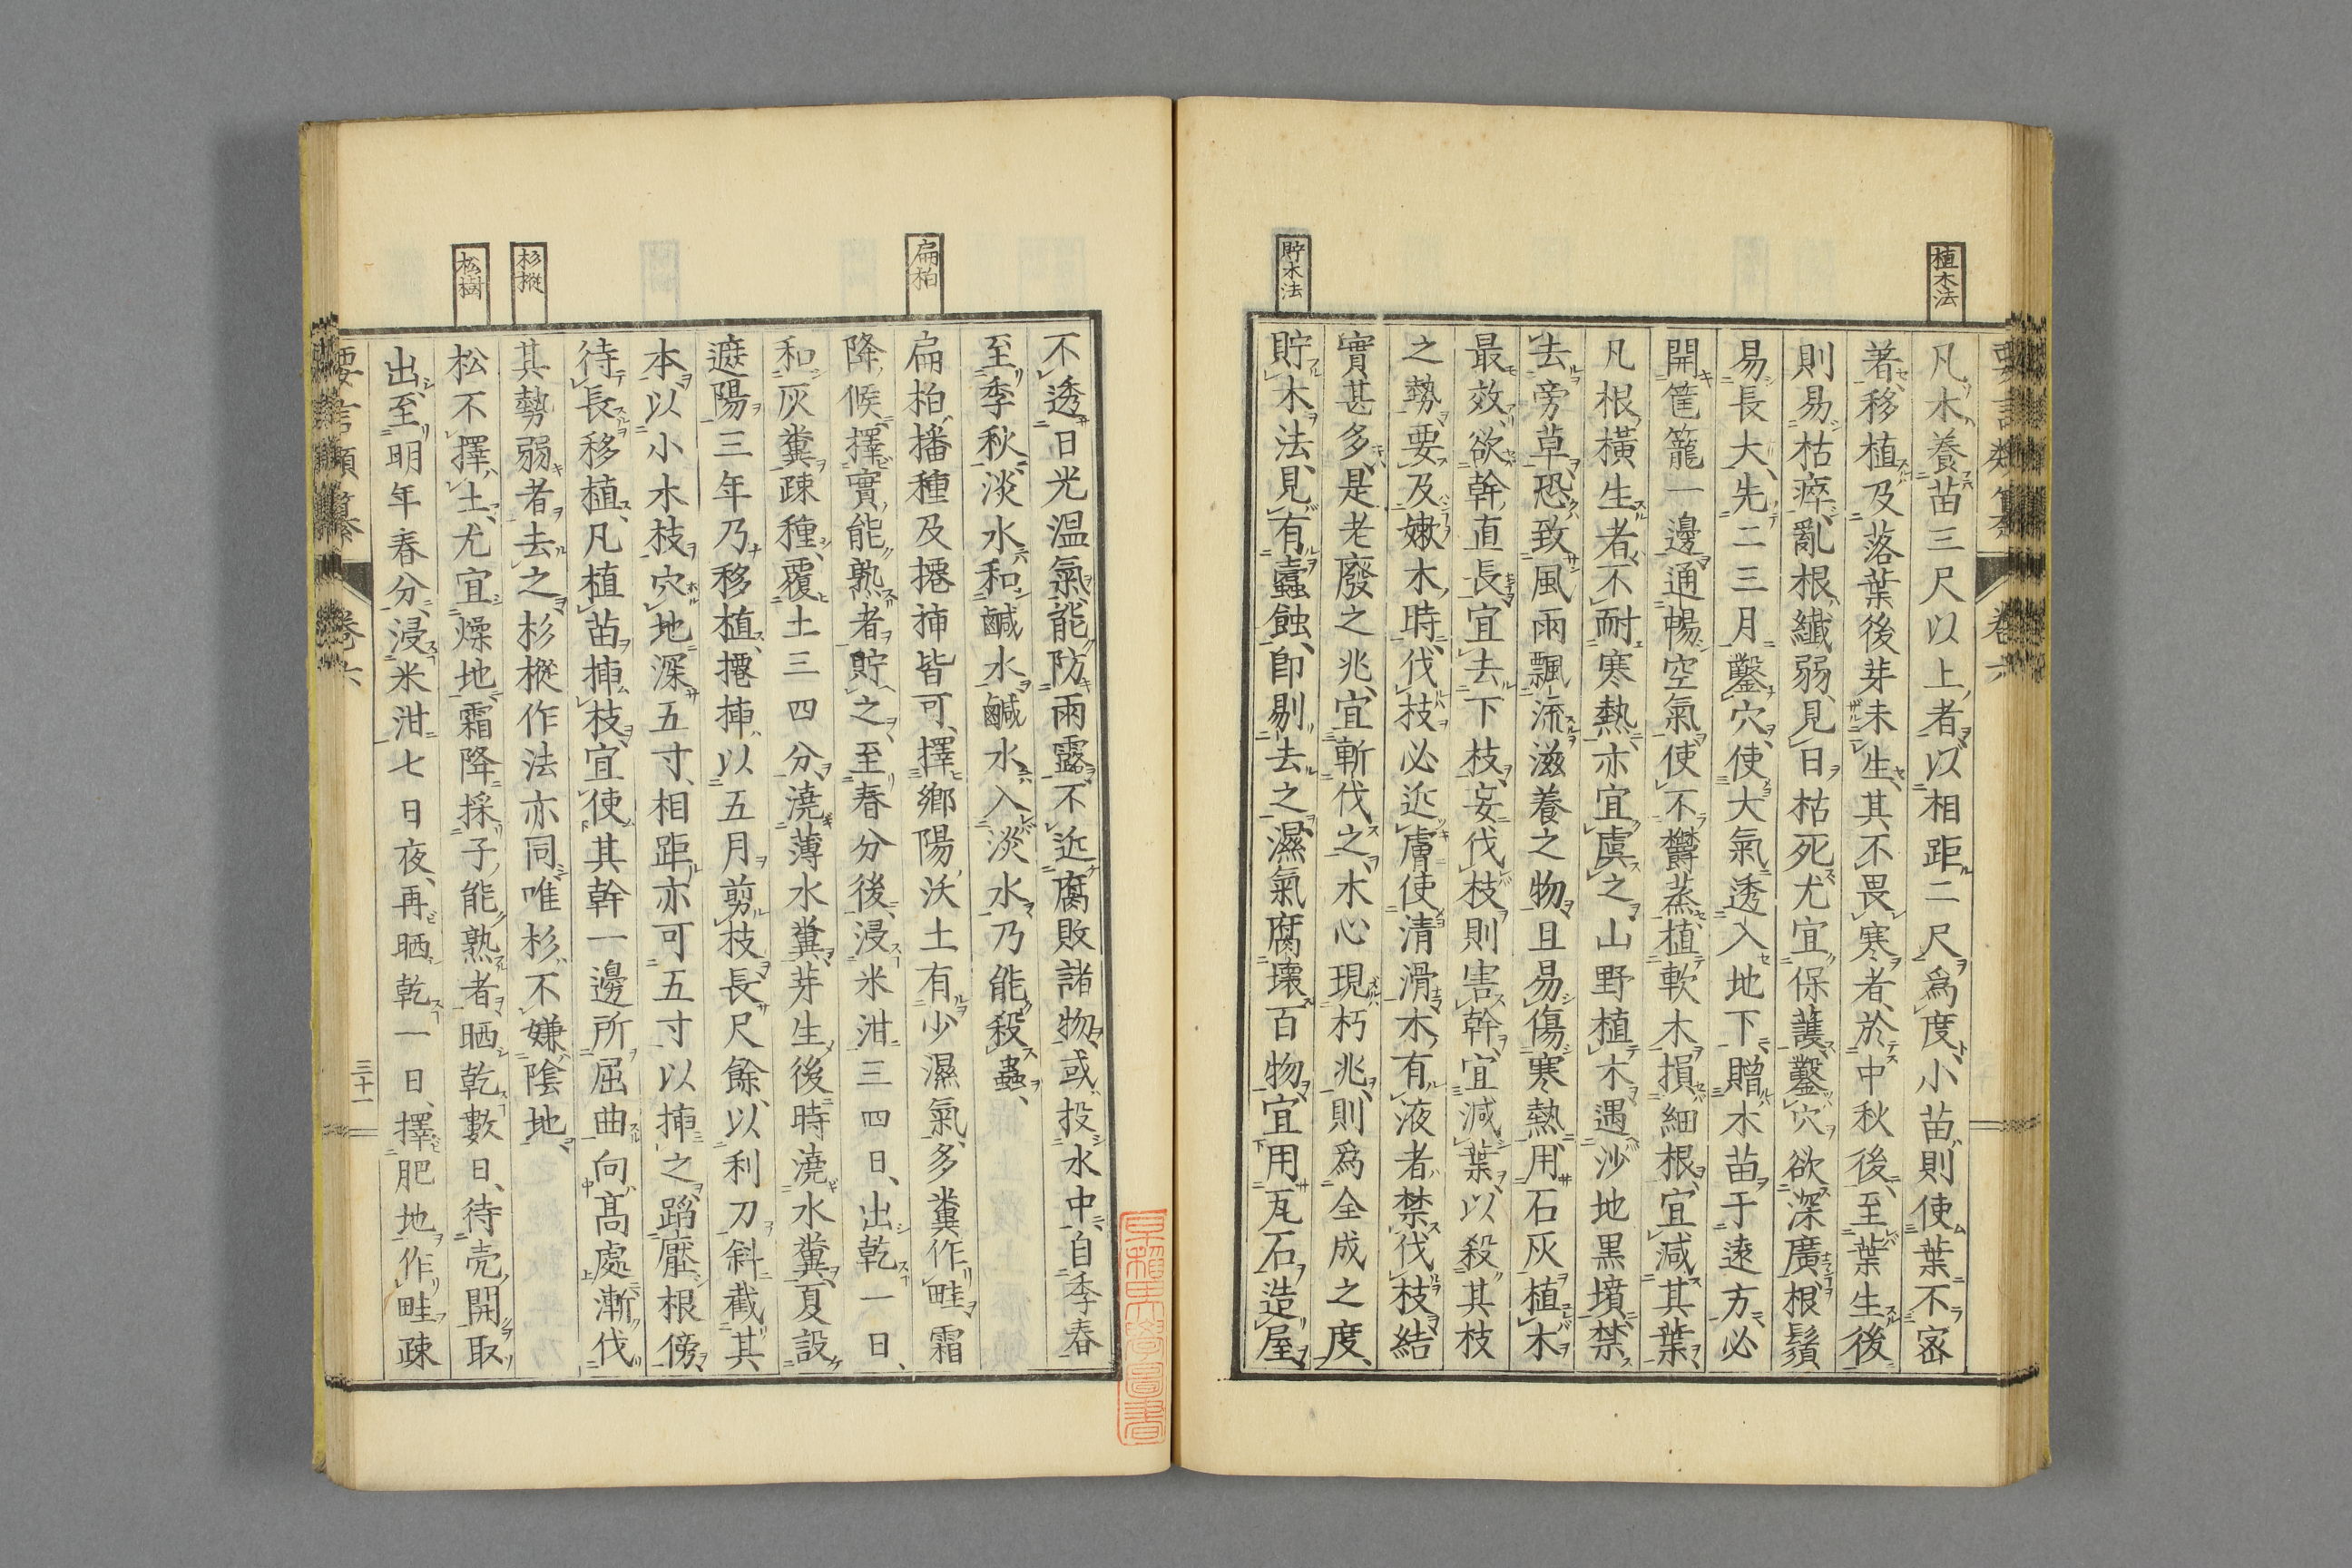 植木法
凡木養苗三尺以上者以相距二尺爲度、小苗則使葉不宻
著移植及落葉後芽未生、其不畏寒者、於中秋後、至葉生後
則易枯瘁、亂根纎弱、見日枯死尤宜保護、鑿穴欲深廣、根鬚
易長大、先二三月、鑿穴、使大氣透入地下、贈木苗于遠方、必
開篚籠一邊、通暢空氣、使不欝蒸、植軟木損細根、宜減其葉、
凡根橫生者、不耐寒熱、亦宜虞之、山野植木遇沙地黒墳、禁
去旁草、恐致風雨飄流滋養之物、且易傷寒熱、用石灰植木
最效、欲幹直長、宜去下枝、妄伐枝則害幹、宜減葉、以殺其枝
之勢、要及嫩木時、伐枝必近膚使清滑、木有液者、禁伐枝、結
實甚多、是老廢之兆、宜斬伐之、木心現朽兆、則爲全成之度、
貯木法
貯木法、見有蠧蝕、卽剔去之、濕氣腐壞百物、宜用瓦石造屋、
要言類纂 卷六
不透日光温氣、能防雨露、不近腐敗諸物、或投水中、自季春
至季秋、淡水和鹹水、鹹水入淡水、乃能殺蟲、
扁柏
扁柏播種及捲揷皆可、擇鄕陽沃土有少濕氣、多糞作畦、霜
降候、擇實能熟者貯之、至春分後、浸米泔三四日、出乾一日、
和灰糞疎種、覆土三四分、澆薄水糞、芽生後時澆水糞、夏設
遮陽三年乃移植、捲揷以五月剪枝長尺餘、以利刀斜截其
本、以小木枝穴地深五寸、相距亦可五寸以揷之、蹈壓根傍、
待長移植、凡植苗揷枝、宜使其幹一邊所屈曲向高處、漸伐
杉樅
其勢弱者去之、杉樅作法亦同、唯杉不嫌陰地、
松樹
松不擇土、尤宜燥地、霜降採子、能熟者晒乾數日、待壳開取
出、至明年春分、浸米泔七日夜、再晒乾一日、擇肥地作畦疎
要言類纂 卷六 三十一